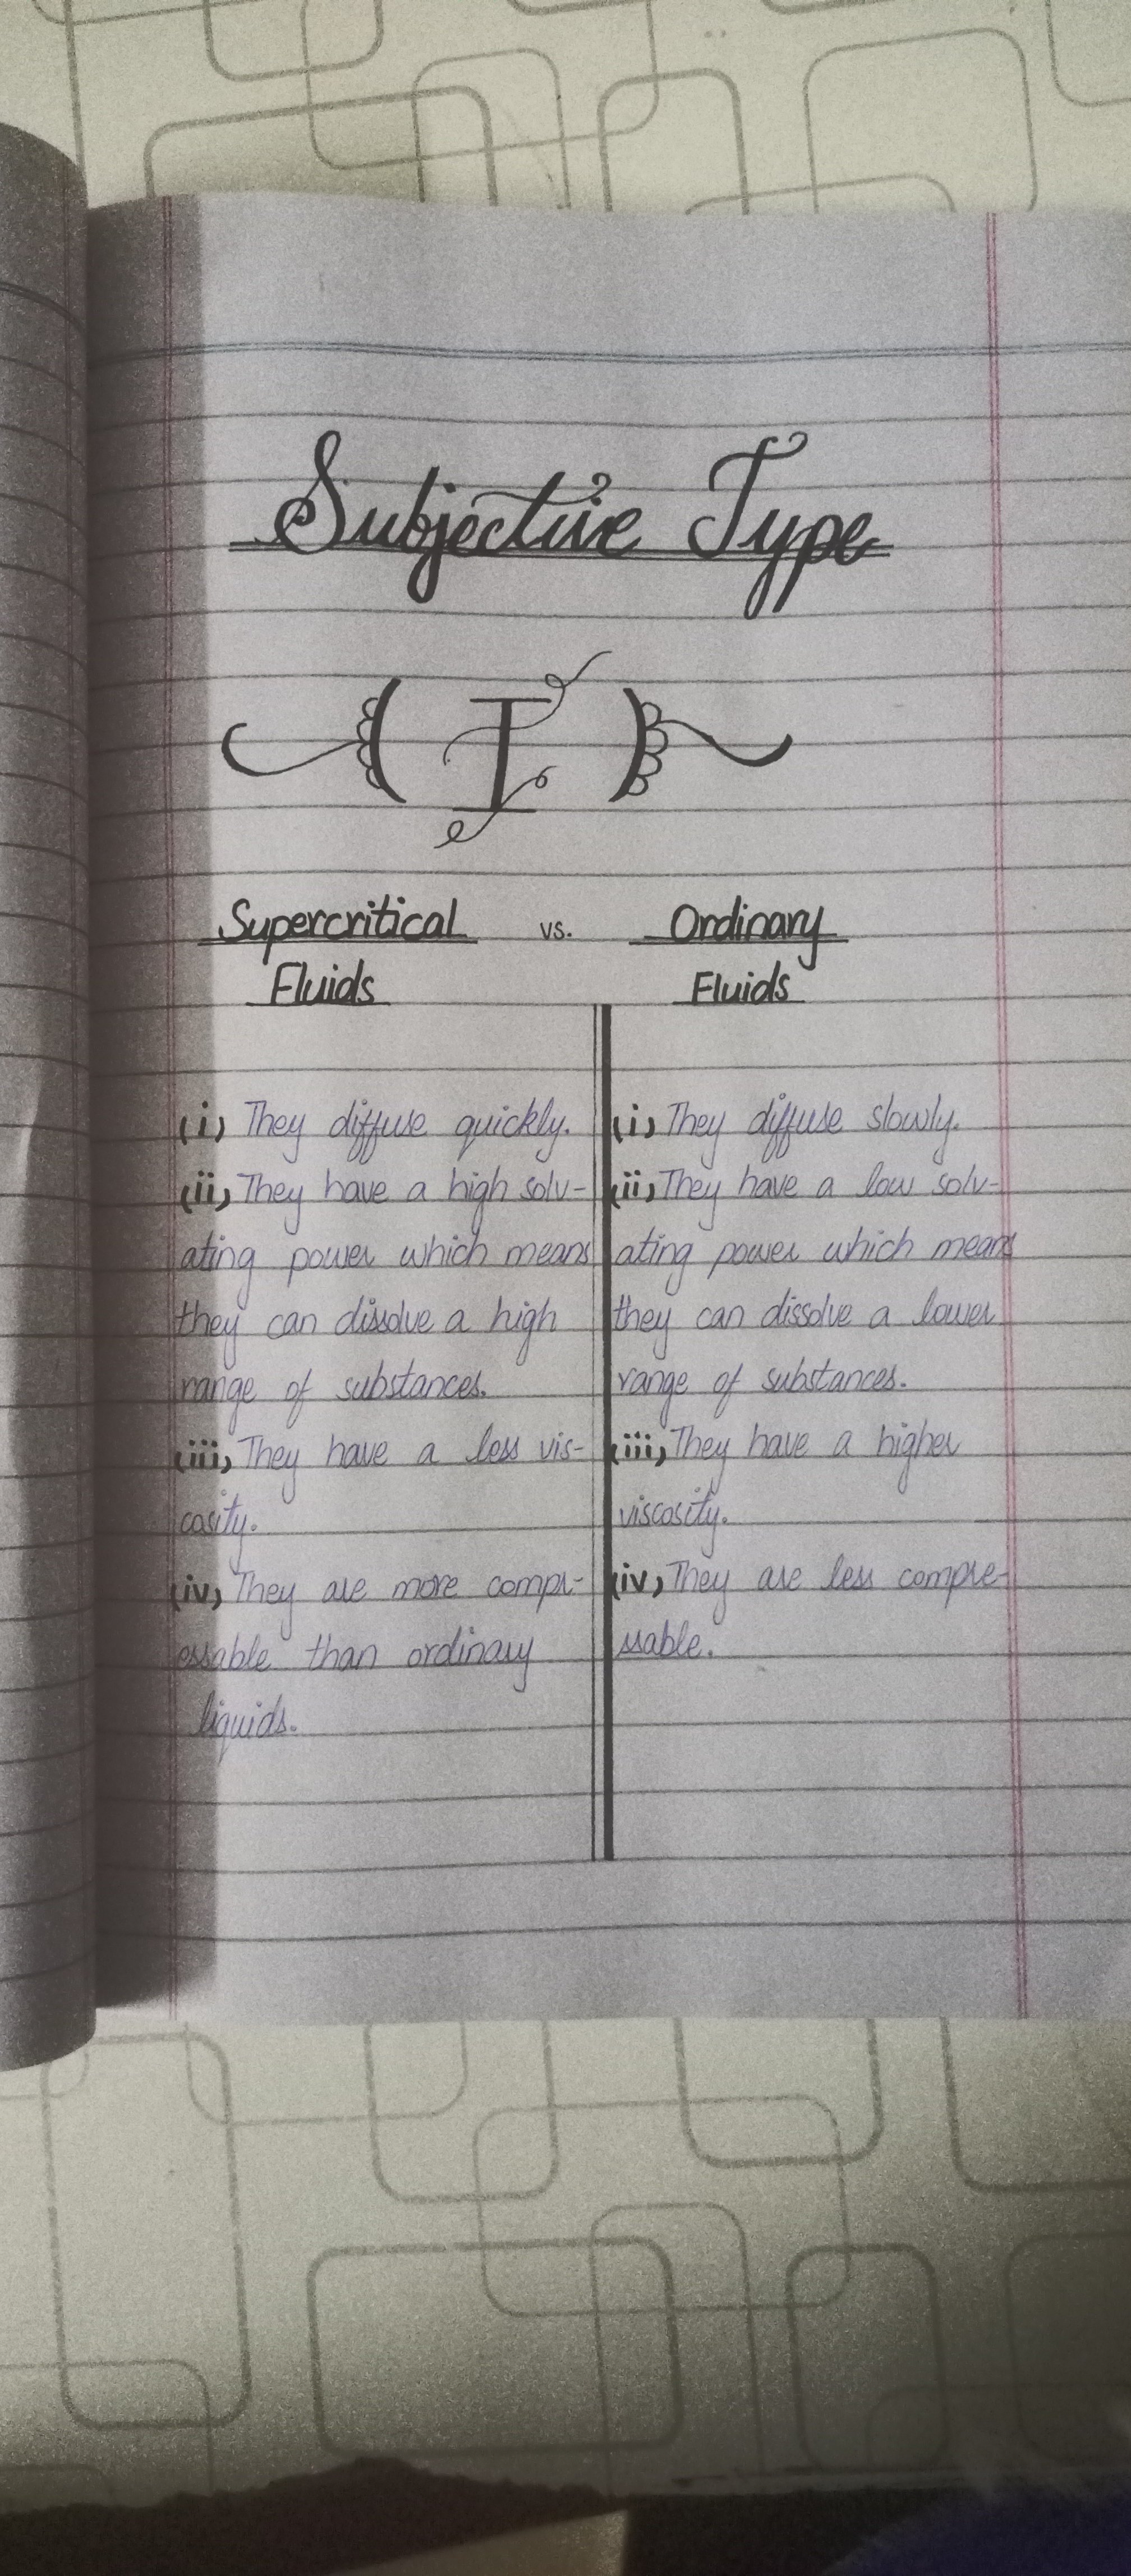 Subjective Type
( I )
Supercritical vs. Ordinary
Fluids Fluids
(i) They diffuse quickly.
(ii) They have a high solv-
ating power which means
they can dissolve a high
range of substances.
(iii) They have a less vis-
cosity.
(iv) They are more compr-
essable than ordinary
liquids.
(i) They diffuse slowly.
(ii) They have a low solv-
ating power which means
they can dissolve a lower
range of substances.
(iii) They have a higher
viscosity.
(iv) They are less compre-
ssable.